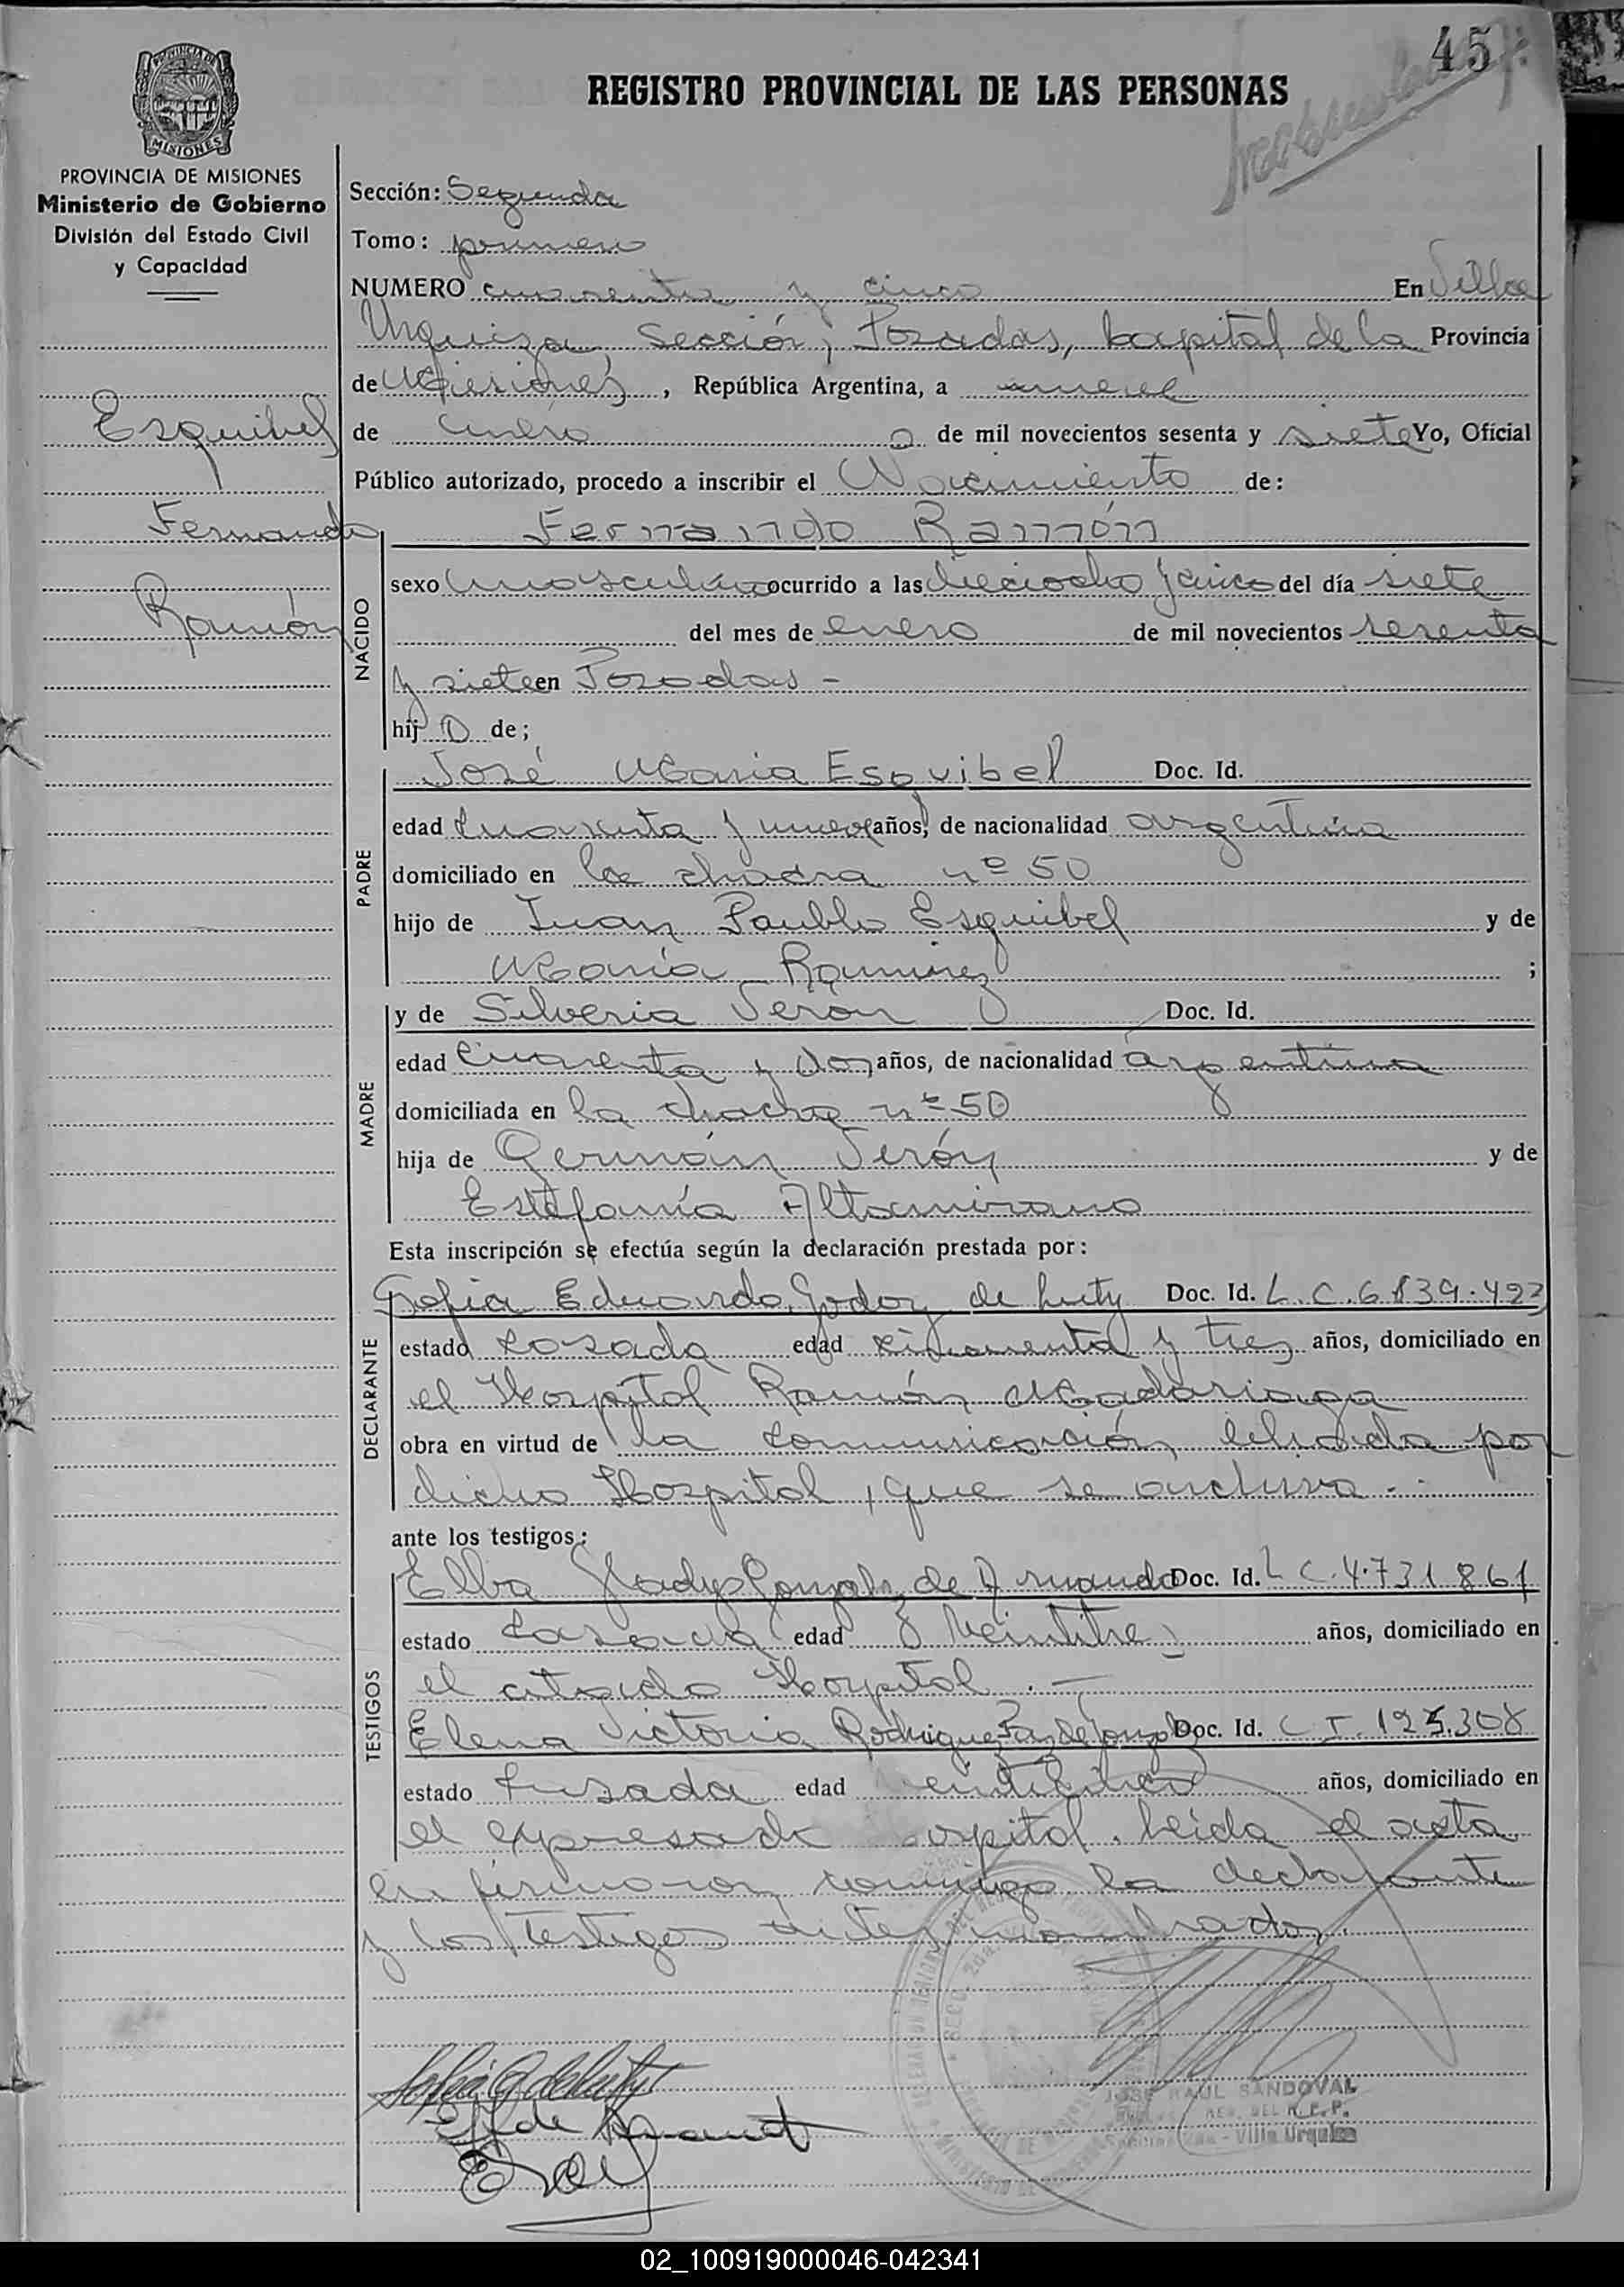 45
REGISTRO PROVINCIAL DE LAS PERSONAS
MISIONES
PROVINCIA DE MISIONES
Ministerio de Gobierno
División del Estado Civil
y Capacidad
Esquibel
Fernando
Ramón
Sección: Segunda
Tomo: primero
NUMERO cuarenta y cinco En Villa
Urquiza, Sección, Posadas, capital de la Provincia
de Misiones, República Argentina, a nueve
de enero de mil novecientos sesenta y siete Yo, Oficial
Público autorizado, procedo a inscribir el Nacimiento de:
Fernando Ramón
NACIDO
sexo masculino ocurrido a las dieciocho y cinco del día siete
del mes de enero de mil novecientos sesenta
y siete en Posadas -
hijo de;
PADRE
José Maria Esquibel Doc. Id.
edad cuarenta y nueve años, de nacionalidad argentina
domiciliado en la chacra nº 50
hijo de Juan Paublo Esquibel y de
María Ramirez ;
MADRE
y de Silveria Verón Doc. Id.
edad cuarenta y dos años, de nacionalidad argentina
domiciliada en la chacra nº 50
hija de Germán Verón y de
Estefanía Altamirano
Esta inscripción se efectúa según la declaración prestada por:
DECLARANTE
Sofia Eduarda Godoy de Doc. Id. L.C. 6.839.423
estado casada edad cincuenta y tres años, domiciliado en
el Hospital Ramón Madariaga
obra en virtud de la comunicación echada por
dicho Hospital, que se archiva.
ante los testigos:
TESTIGOS
Elba Gladys de Doc. Id. L C. 4.731.861
estado casada edad veintitres años, domiciliado en
el citado Hospital. -
Elena Victoria Rodriguez de Doc. Id. C.I. 125.308
estado casada edad años, domiciliado en
el expresado Hospital. Leída el acta
la firmaron conmigo la declarante
y los testigos antes nombrados.
JOSE RAUL SANDOVAL
R.P.P.
Villa Urquiza
02_100919000046-042341